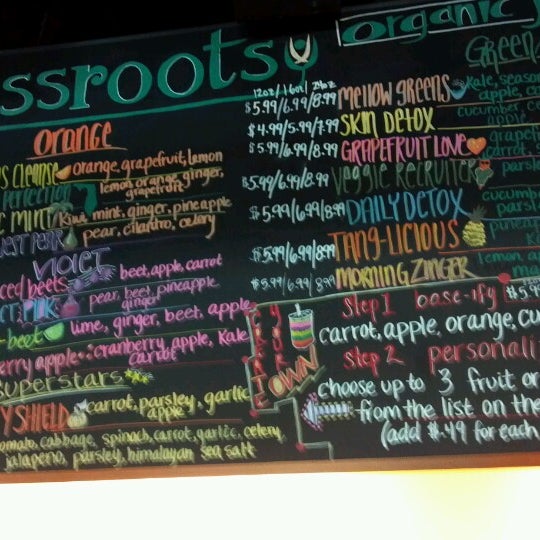 ssroots
organic
12oz/16oz/26oz
Orange
s cleanse orange, grapefruit, lemon
Perfection lemon, orange, ginger, grapefruit
c mint Kiwi, mint, ginger, pineapple
pear, cilantro, celery
Violet
ced beets beet, apple, carrot
pear, beet, pineapple
ginger
-beet lime, ginger, beet, apple
erry apple cranberry, apple, kale
carrot
superstars
y shield carrot, parsley, garlic
apple
omato, cabbage, spinach, carrot, garlic, celery
jalapeno, parsley, himalayan sea salt
Green
$5.99/6.99/8.99 Mellow Greens kale, seaso
apple, co
$4.99/5.99/7.99 Skin Detox cucumber, ce
apple
$5.99/6.99/8.99 Grapefruit Love grapefr
carrot, s
$5.99/6.99/8.99 Veggie Recruiter parsle
$5.99/6.99/8.99 Daily Detox cucumb
parsl
$5.99/6.99/8.99 Tang-licious
$5.99/6.99/8.99 Morning Zinger lemon, a
create your own
Step 1 base-ify $5.9
carrot, apple, orange, cu
Step 2 personali
choose up to 3 fruit or
from the list on the
(add $.49 for each